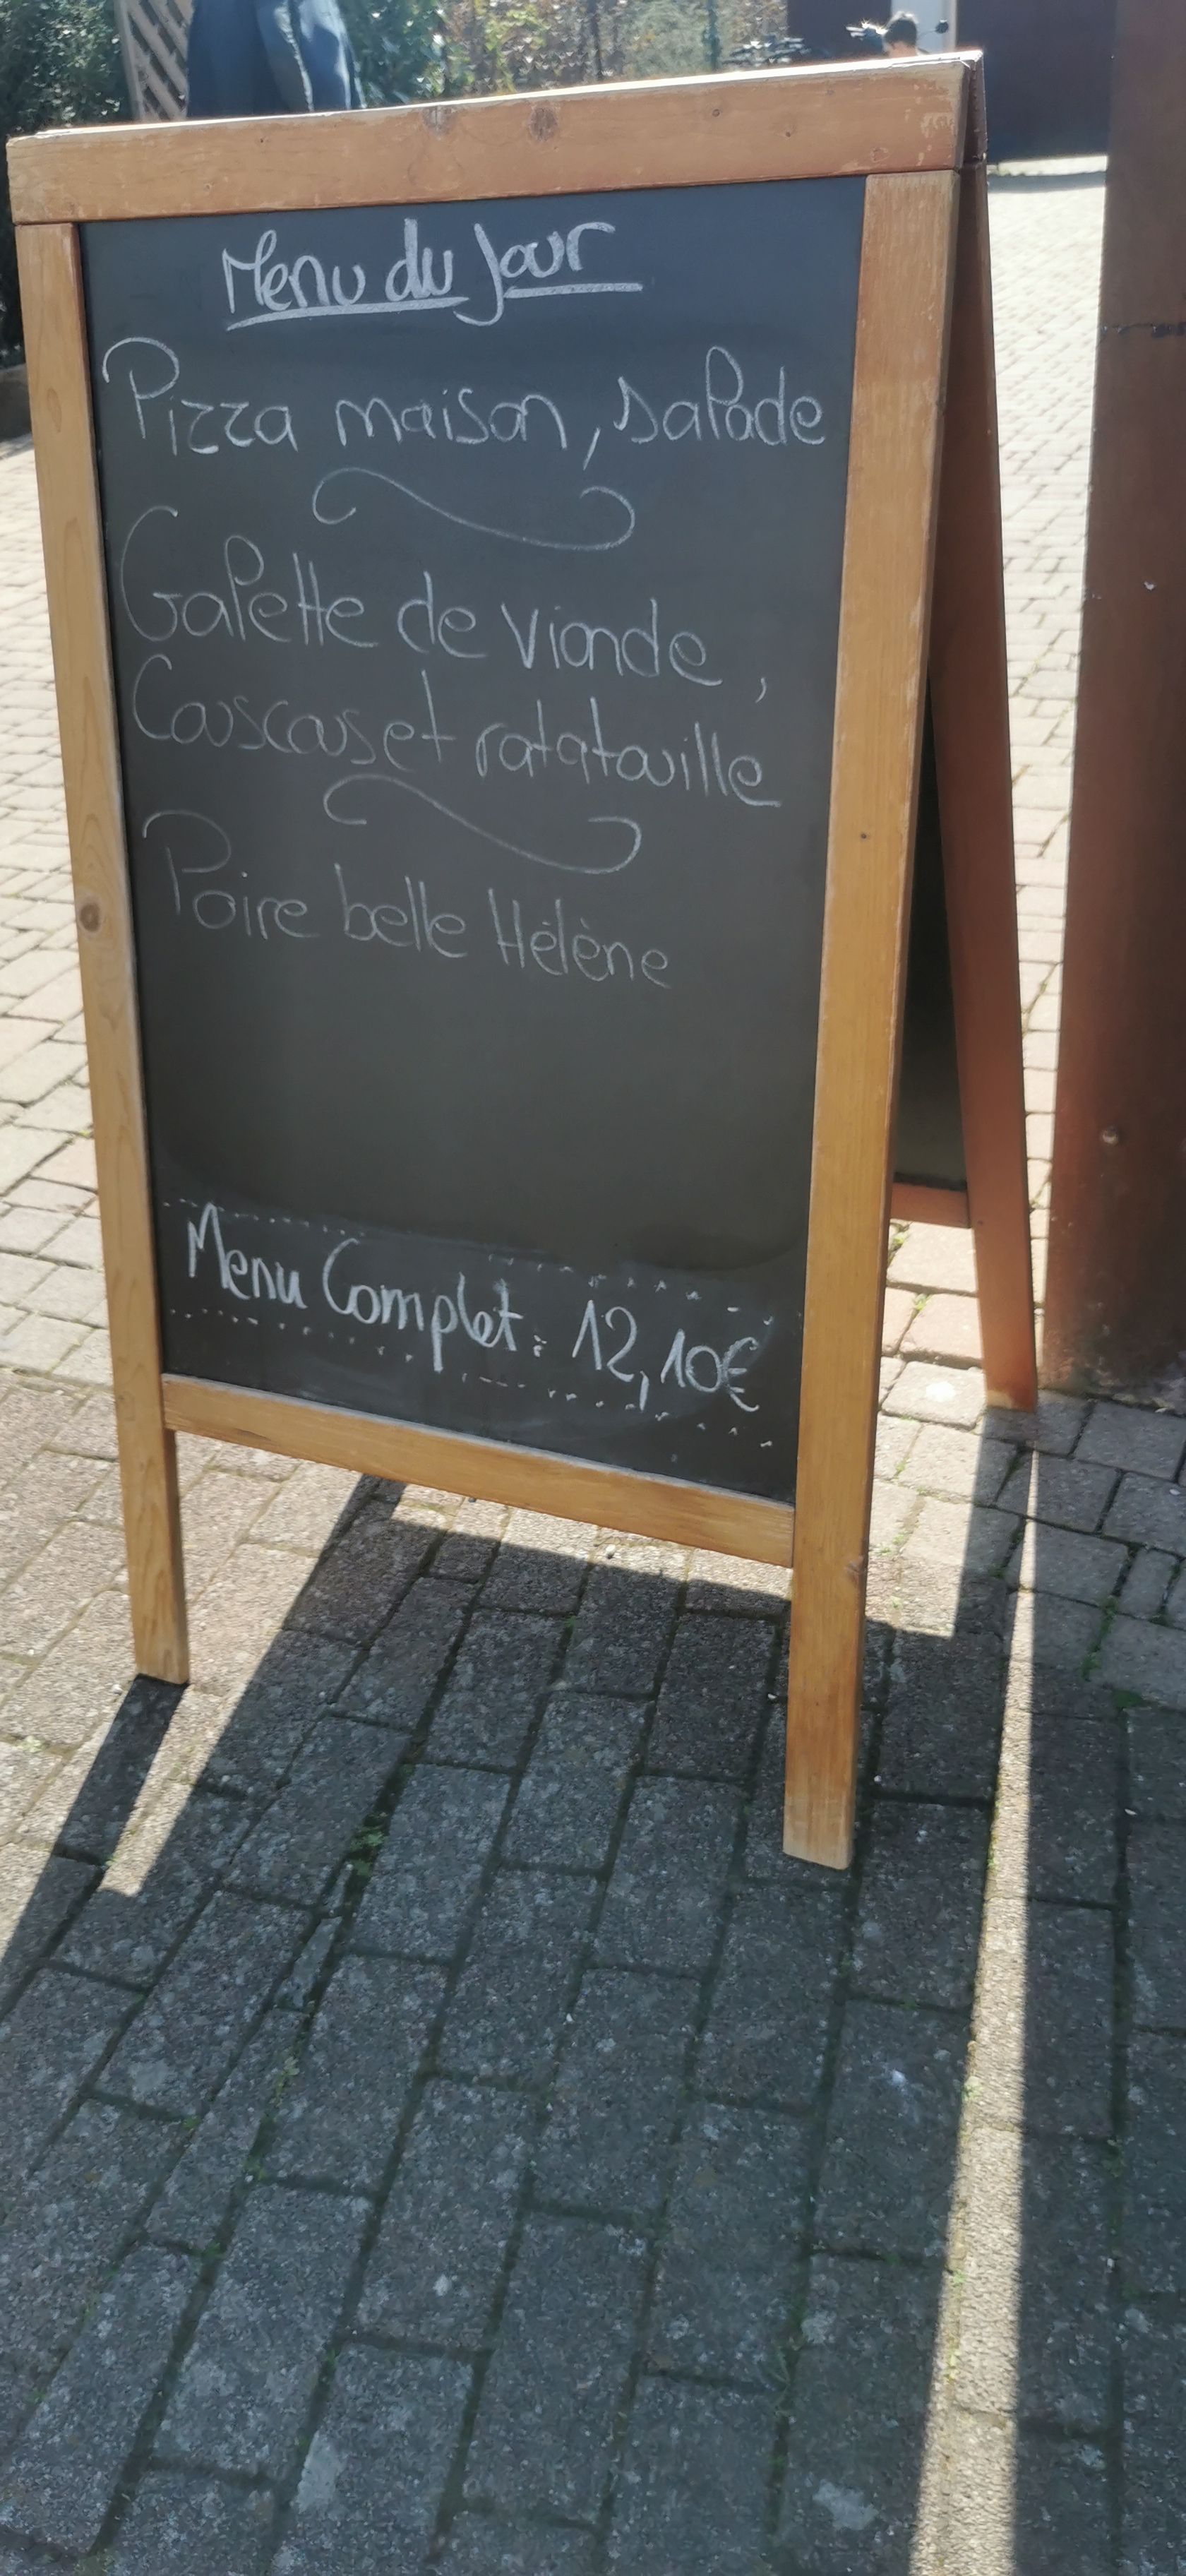 Menu du Jour
Pizza maison, salade
Galette de viande,
Couscous et ratatouille
Poire belle Hélène
Menu Complet : 12,10€